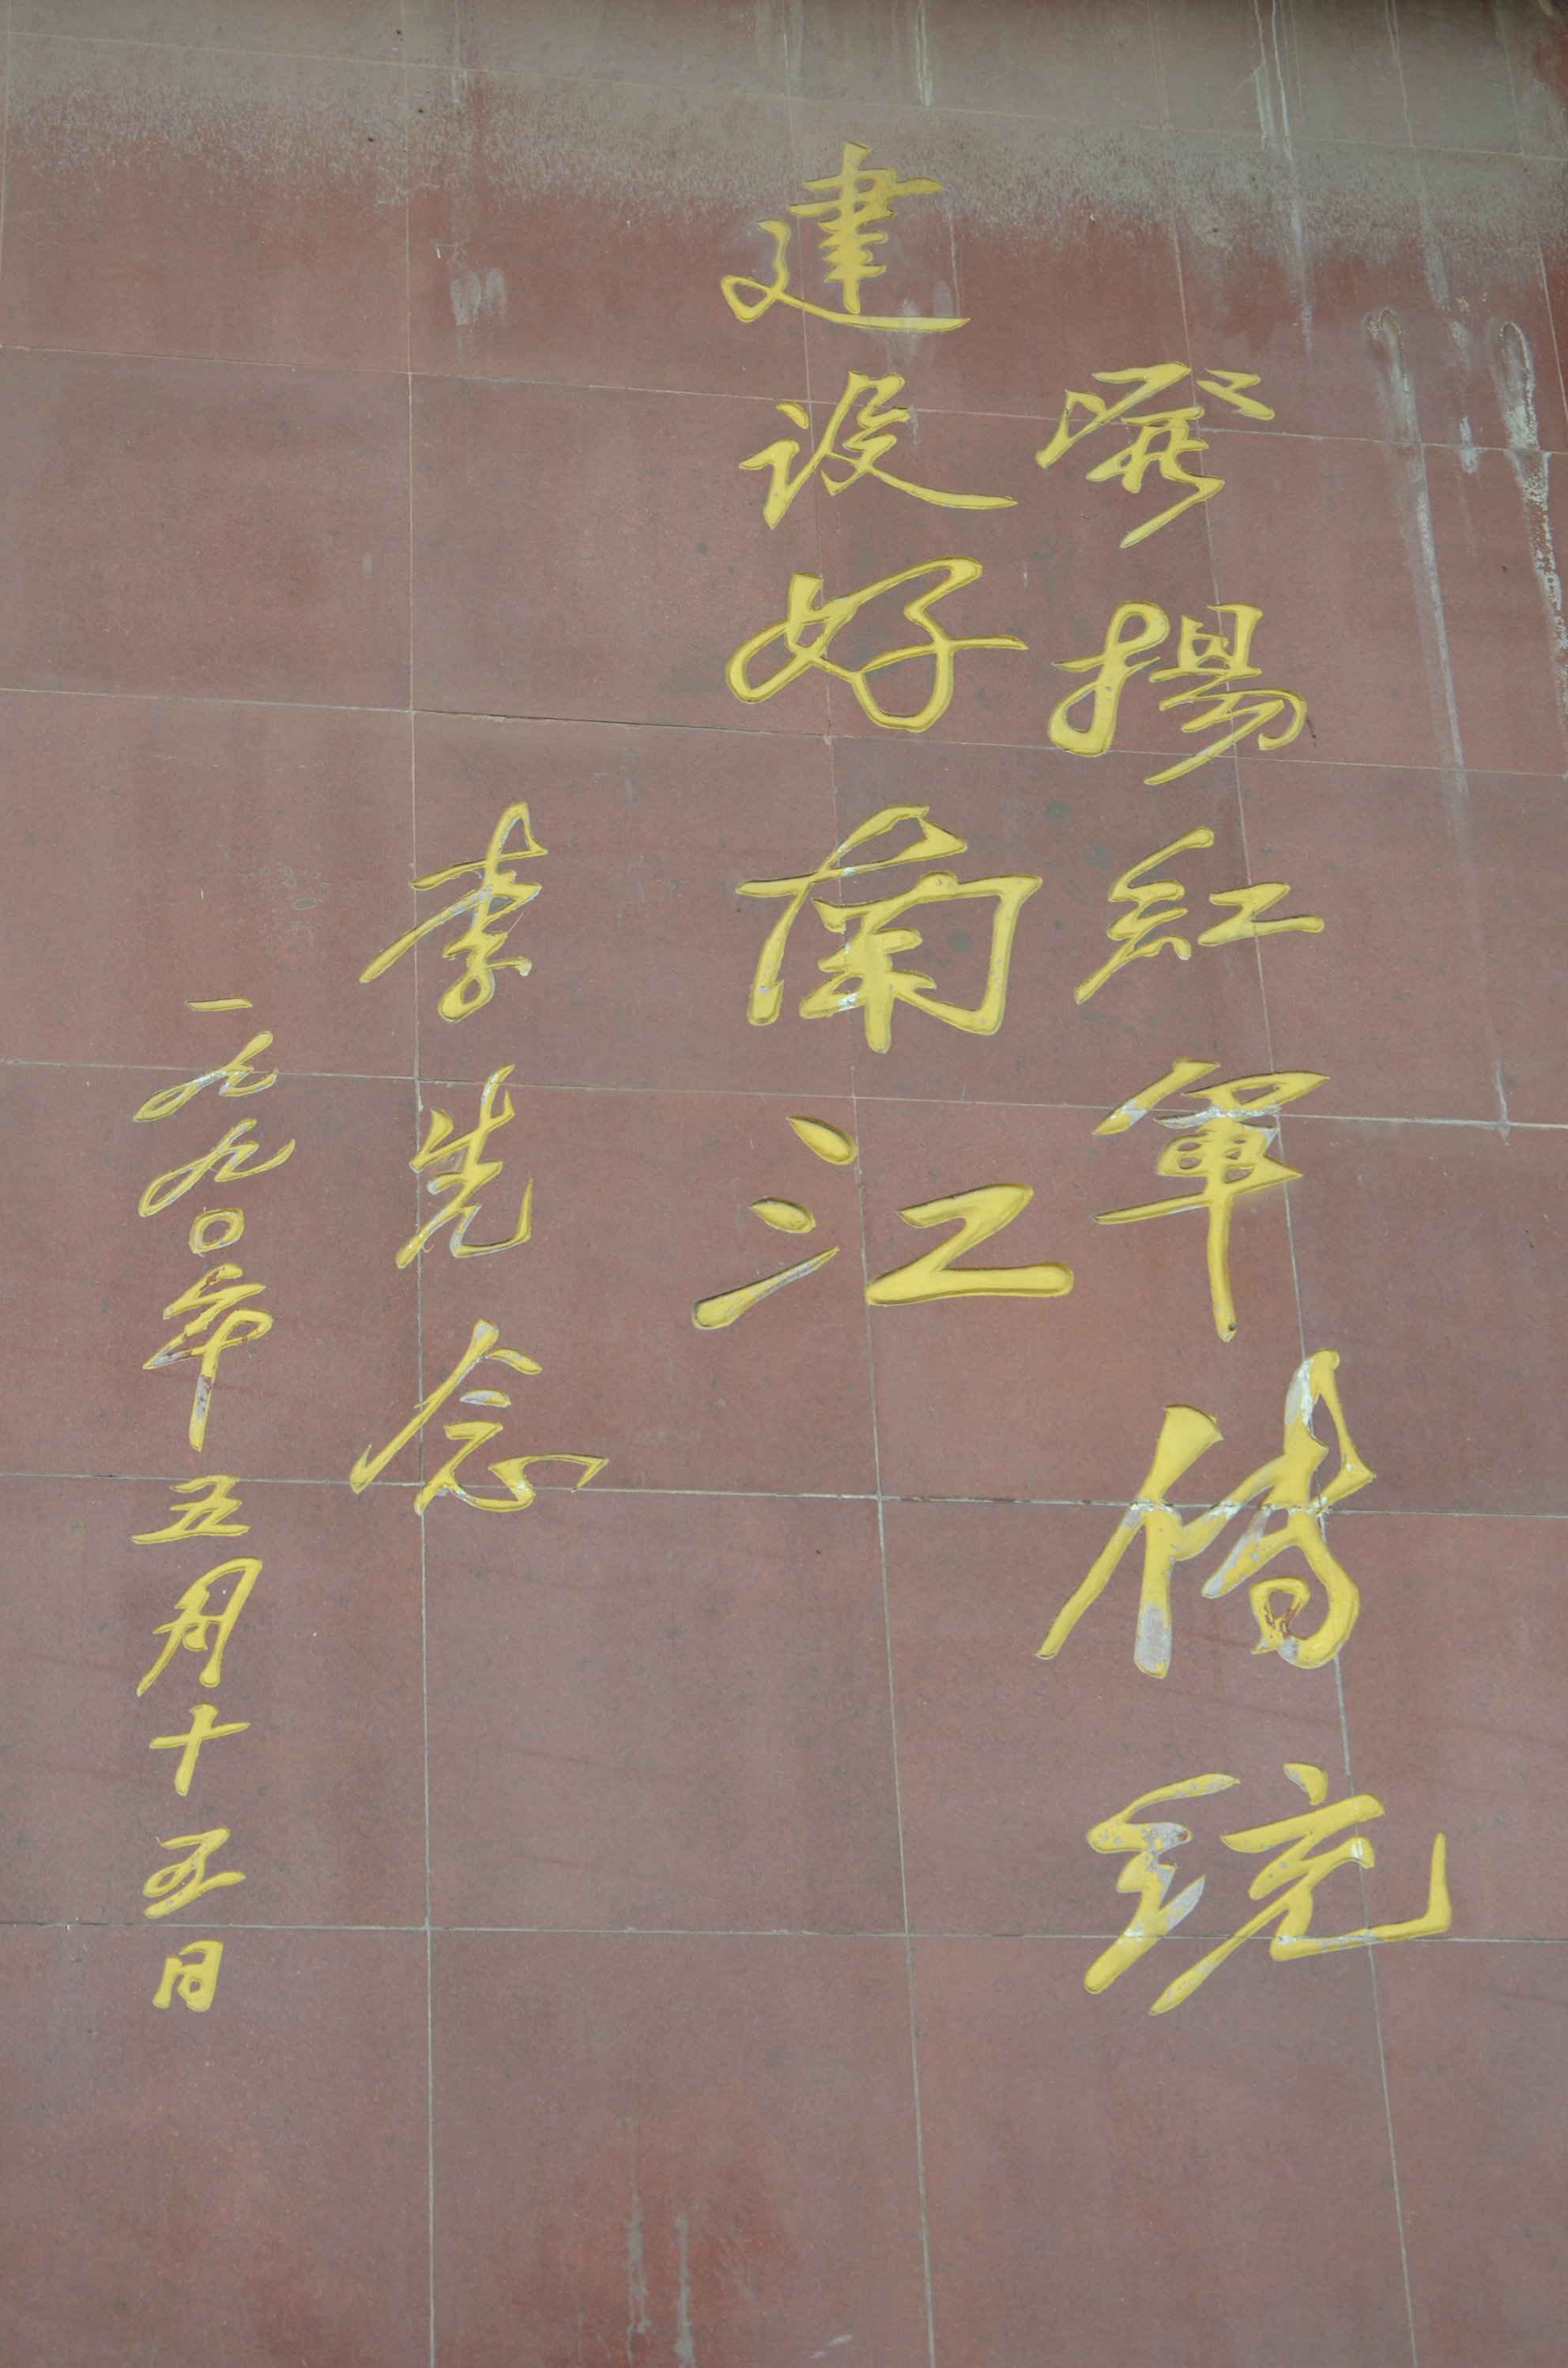 發揚紅軍傳統
建设好南江
李先念
一九九〇年五月十五日